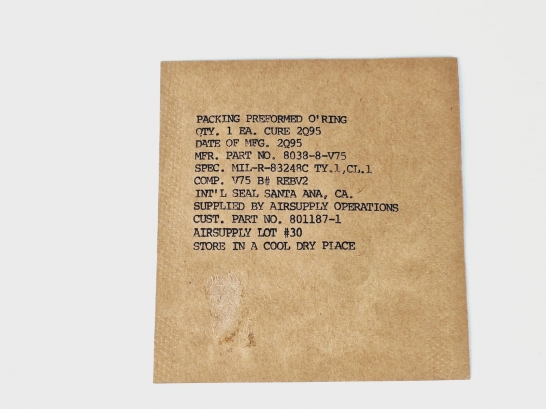 PACKING PREFORMED O'RING
QTY. 1 EA. CURE 2Q95
DATE OF MFG. 2Q95
MFR. PART NO. 8038-8-V75
SPEC. MIL-R-83248C TY.1,CL.1
COMP. V75 B# REBV2
INT'L SEAL SANTA ANA, CA.
SUPPLIED BY AIRSUPPLY OPERATIONS
CUST. PART NO. 801187-1
AIRSUPPLY LOT #30
STORE IN A COOL DRY PLACE